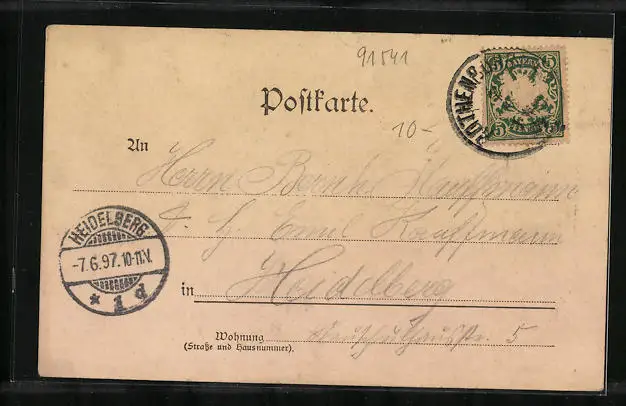 91541
5 BAYERN 5
ROTHENB
5 5
Postkarte.
10-
An
Herrn Kauffmann
Emil Kauffmann
HEIDELBERG
-7.6.97.10-11.V.
* 1 d
in Heidelberg
Wohnung 5
(Straße und Hausnummer).